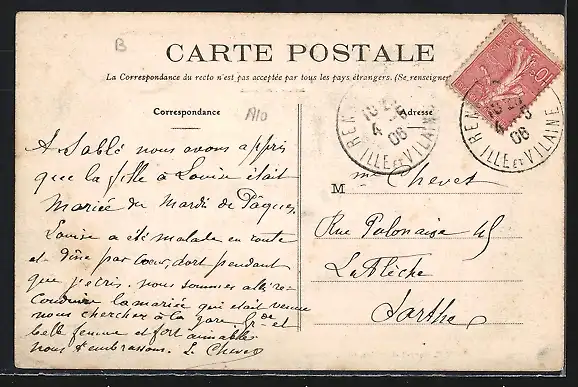 B
CARTE POSTALE
La Correspondance du recto n'est pas acceptée par tous les pays étrangers. (Se renseigner
Correspondance
A10
Adresse
RENNES
ILLE ET VILAINE
4 -5
06
RENNES
ILLE ET VILAINE
4 -5
06
10
A Sablé nous avons appris
que la fille à Louise était
mariée du Mardi de Pâques,
Louise a été malade en route
et dîne par cœur, dort pendant
que j'écris. nous sommes allé re=
conduire la mariée qui était venue
nous chercher à la gare gde et
belle femme et fort aimable
nous t'embrassons. L. Chevet
M me Chevet
Rue Polonaise 45
La Flèche
Sarthe